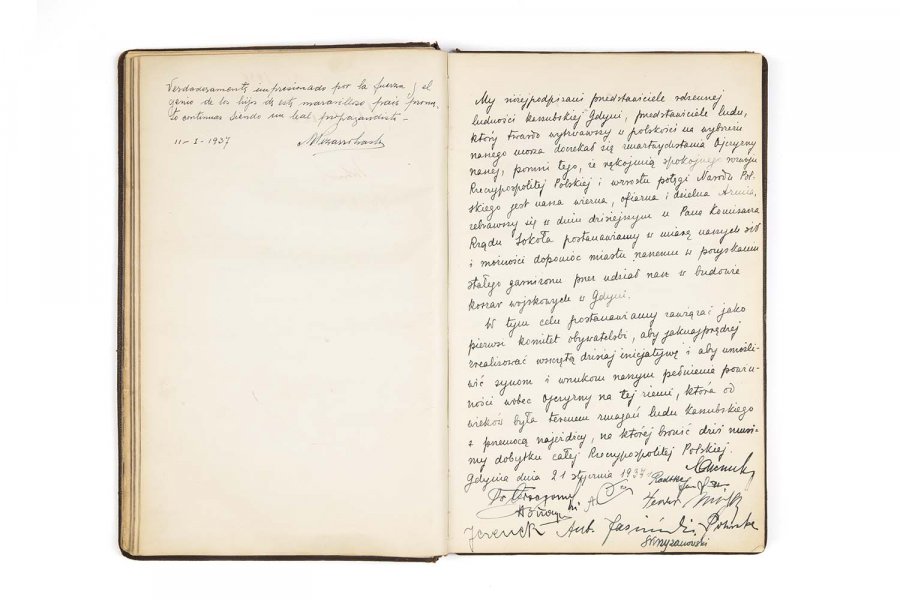 Verdaderamente impresionado por la fuerza y el
genio de los hijos de este maravilloso pais prome-
to continuar siendo un leal propagandista -
11-I-1937
My niżejpodpisani przedstawiciele rdzennej
ludności kaszubskiej Gdyni, przedstawiciele ludu,
który twardo wytrwawszy w polskości na wybrzeżu
naszego morza doczekał się zmartwychwstania Ojczyzny
naszej, pomni tego, że rękojmią spokojnego rozwoju
Rzeczypospolitej Polskiej i wzrostu potęgi Narodu Pol-
skiego jest nasza wierna, ofiarna i dzielna Armia,
zebrawszy się w dniu dzisiejszym u Pana Komisarza
Rządu Sokoła postanawiamy w miarę naszych sił
i możności dopomóc miastu naszemu w pozyskaniu
stałego garnizonu przez udział nasz w budowie
koszar wojskowych w Gdyni.
W tym celu postanawiamy zawiązać jako
pierwsi komitet obywatelski, aby jaknajprędzej
zrealizować wszczętą dzisiaj inicjatywę i aby umożli-
wić synom i wnukom naszym pełnienie powin-
ności wobec Ojczyzny na tej ziemi, która od
wieków była terenem zmagań ludu kaszubskiego
z przemocą najeźdźcy, na której bronić dziś musi-
my dobytku całej Rzeczypospolitej Polskiej.
Gdynia dnia 21 stycznia 1937
Radtke
Ant. Jasiński
Skrzyżanowski